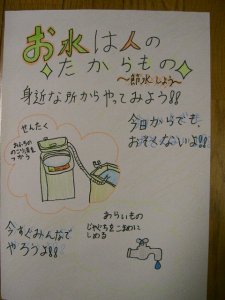 お水は人の
たからもの
～節水しよう～
身近な所からやってみよう!!
せんたく
おふろの
のこり湯を
つかう
今日からでも、
おそくないよ!!
あらいもの
じゃぐちをこまめに
しめる
今すぐみんなで
やろうよ!!